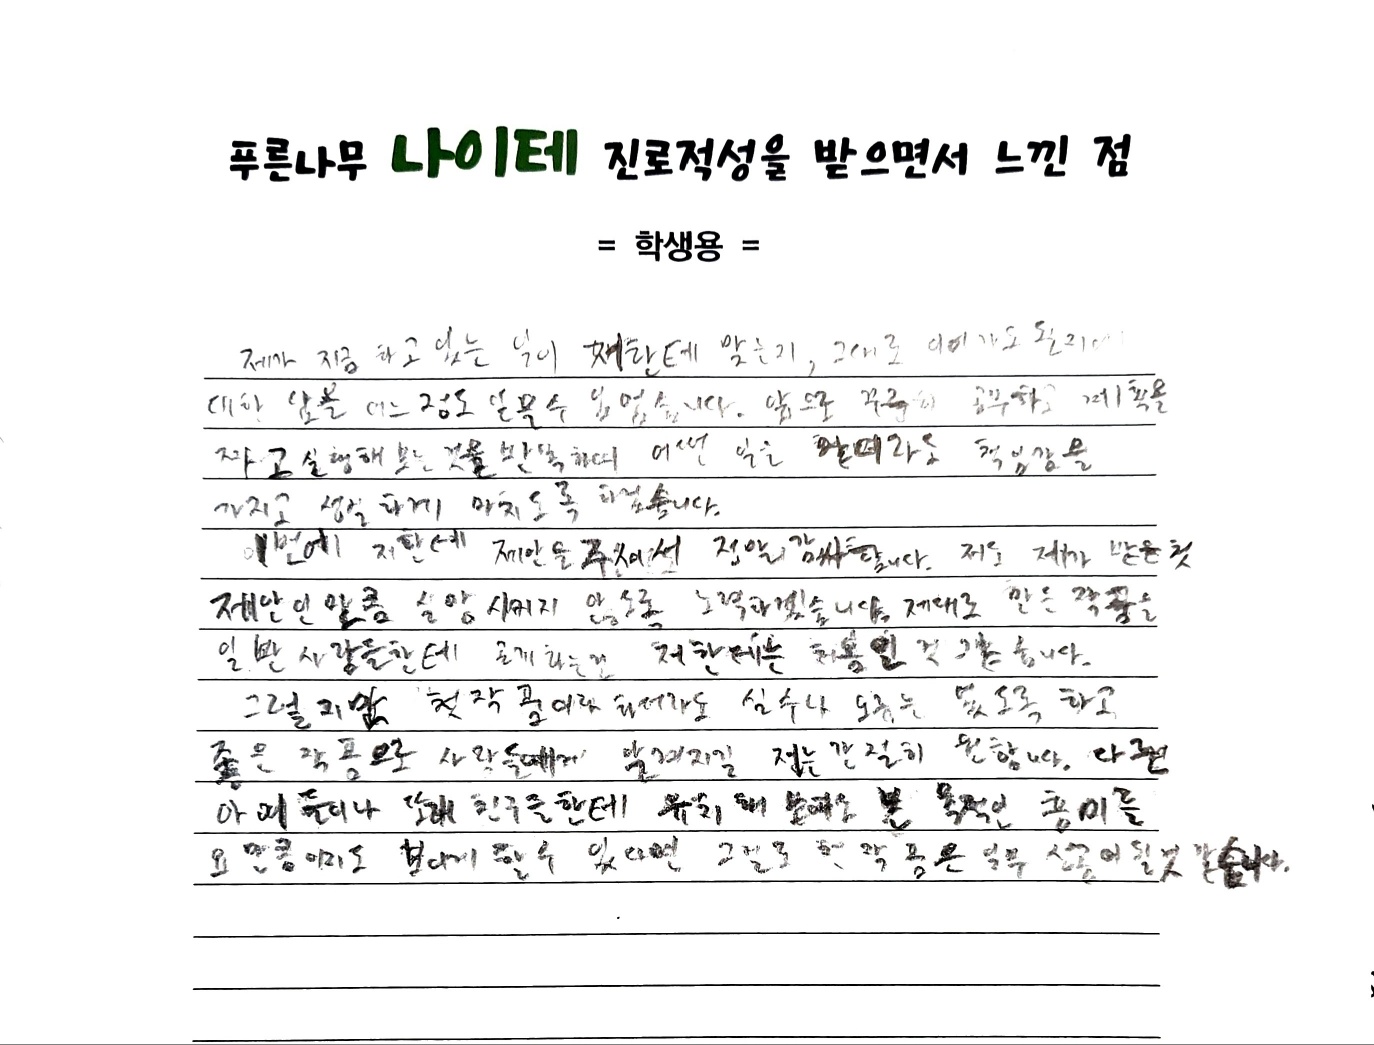 푸른나무 나이테 진로적성을 받으면서 느낀 점
= 학생용 =
제가 지금 하고 있는 일이 저한테 맞는지, 그대로 이어가도 될지에
대한 답을 어느정도 얻을 수 있었습니다. 앞으로 꾸준히 공부하고 계획을
짜고 실행해 보는 것을 반복하며 어떤 일을 맡더라도 책임감을
가지고 성실하게 마치도록 하겠습니다.
이번에 저한테 제안을 주셔서 정말 감사합니다. 저도 제가 받은 첫
제안인 만큼 실망시키지 않도록 노력하겠습니다. 제대로 만든 작품을
일반 사람들한테 공개하는건 저한테는 처음인 것 같습니다.
그렇지만 첫 작품이라 하더라도 실수나 오류는 없도록 하고
좋은 작품으로 사람들에게 알려지길 저는 간절히 원합니다. 다른
아이들이나 또래 친구들한테 유치해 보여도 본 목적인 흥미를
요만큼이라도 느끼게 할 수 있다면 그걸로 첫 작품은 성공이 될 것 같습니다.